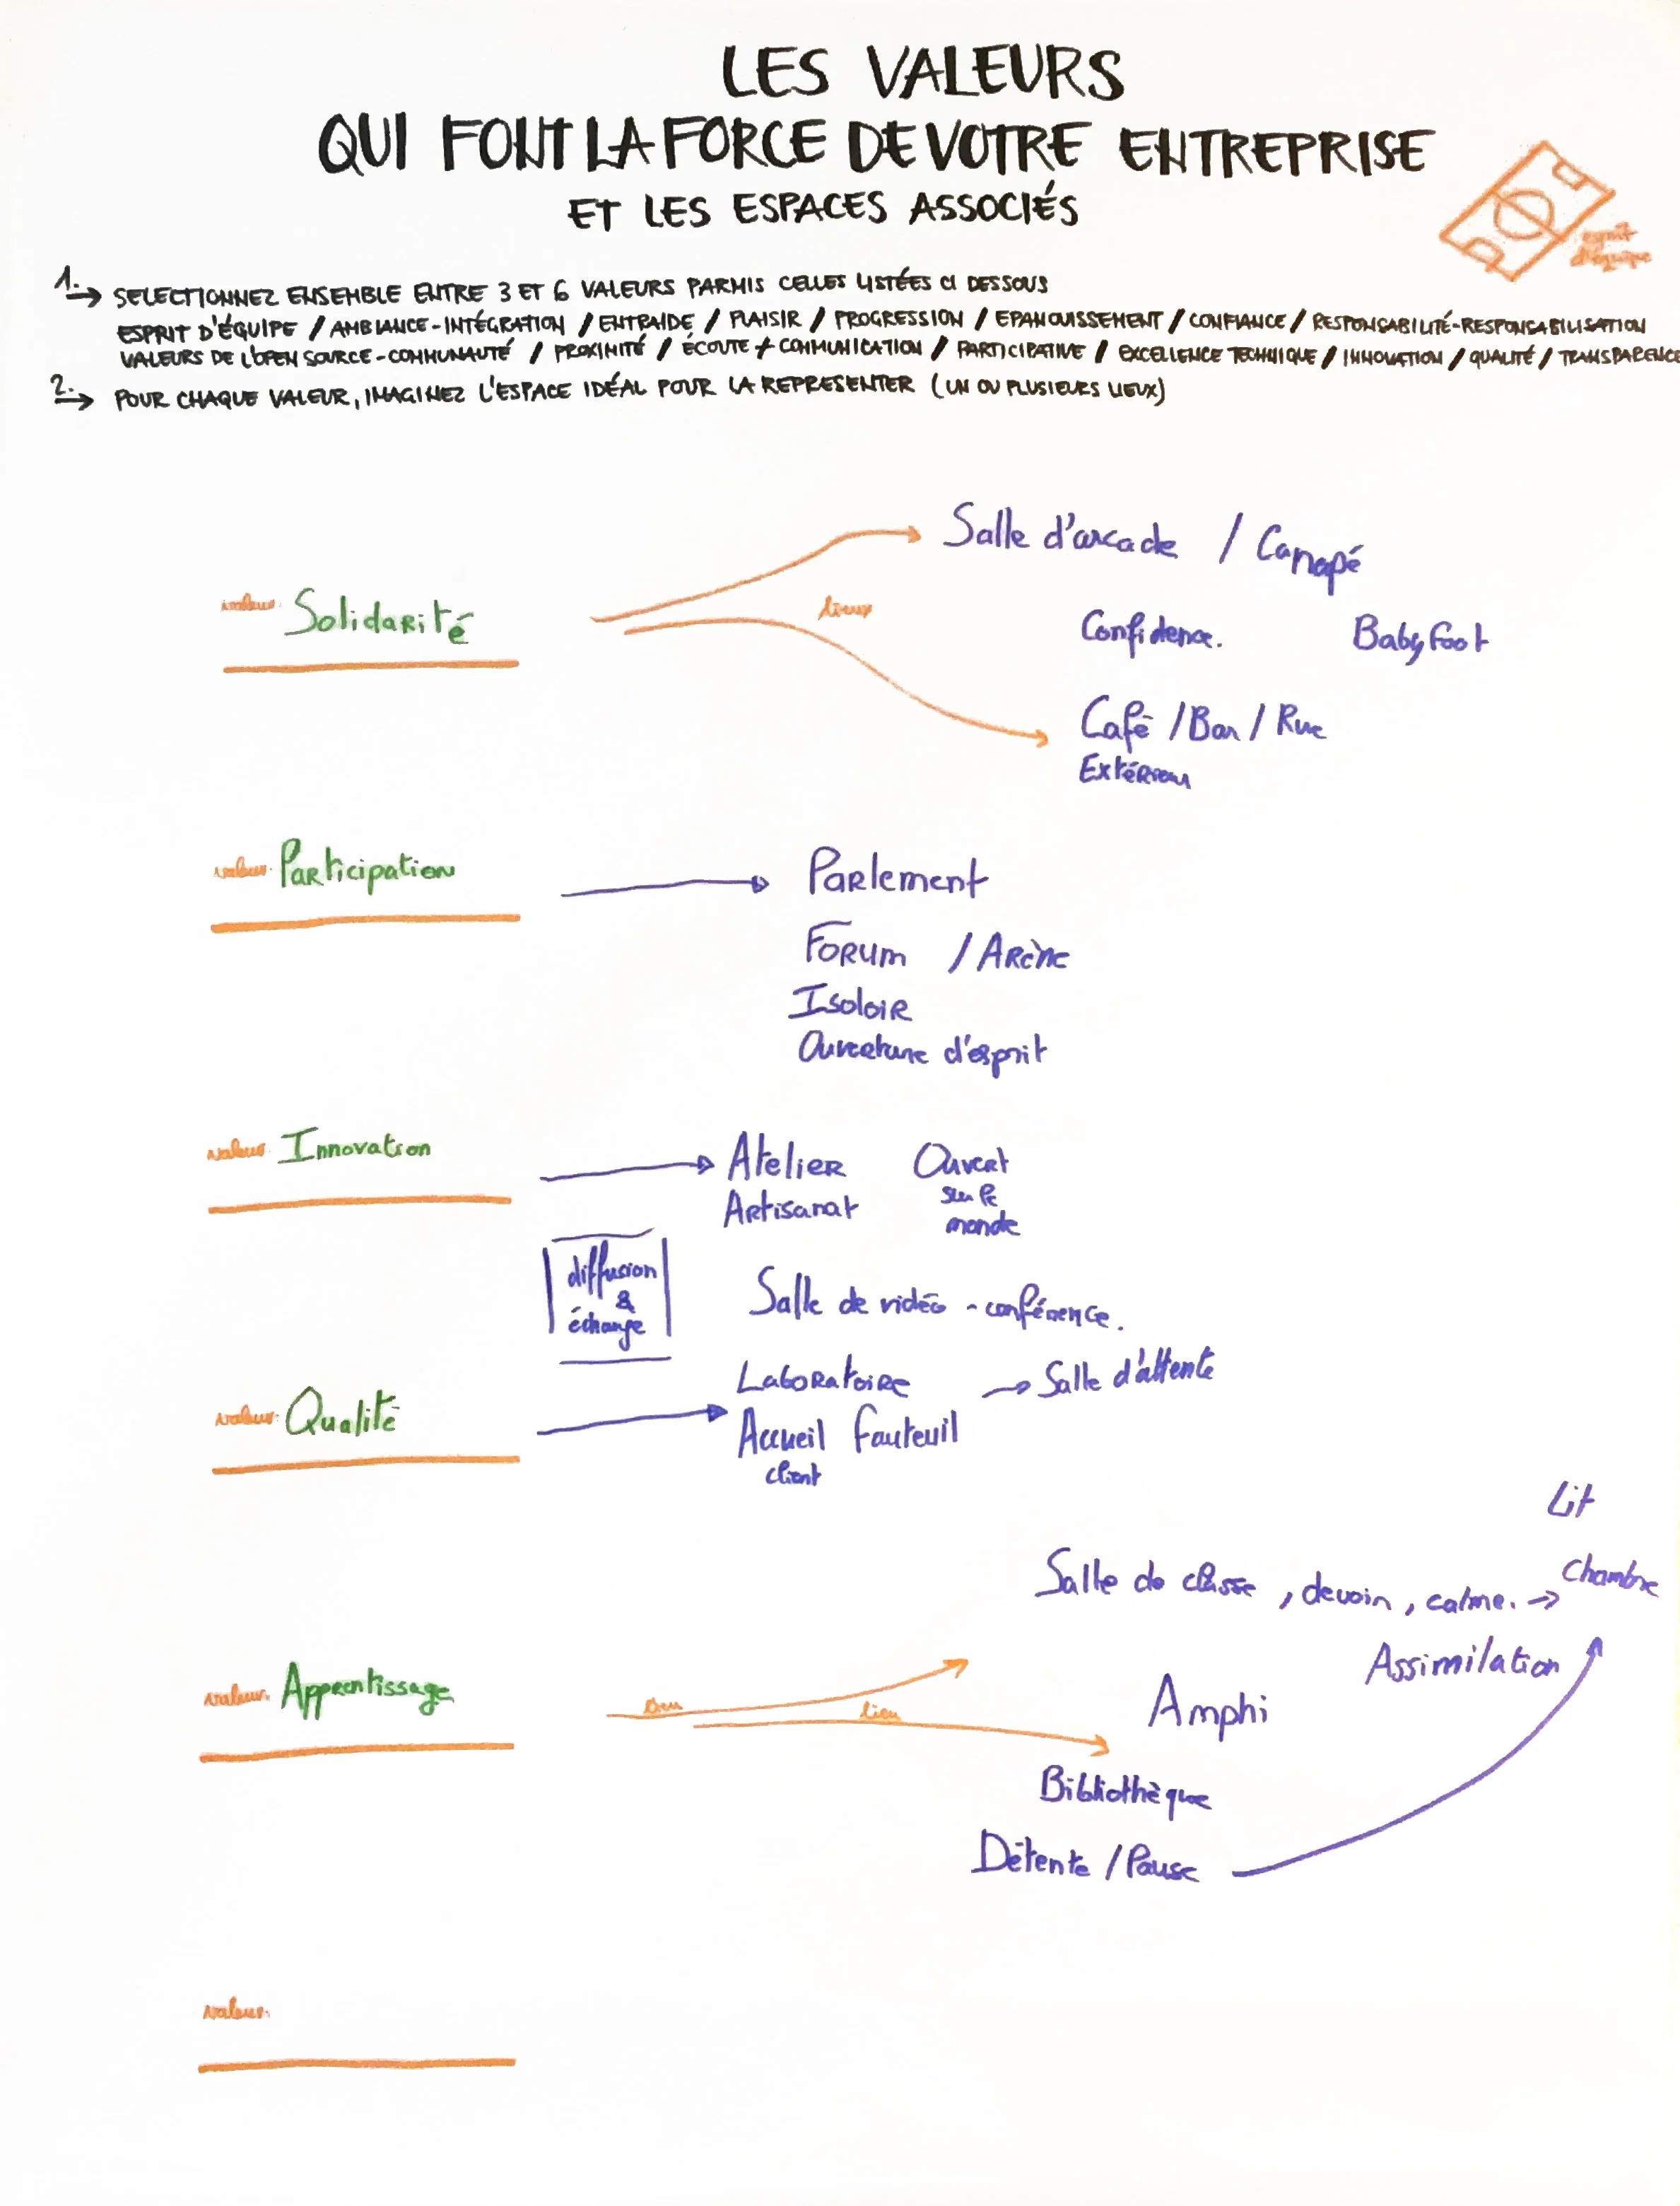 LES VALEURS
QUI FONT LA FORCE DE VOTRE ENTREPRISE
ET LES ESPACES ASSOCIÉS
esprit
d'équipe
1. → SELECTIONNEZ ENSEMBLE ENTRE 3 ET 6 VALEURS PARMIS CELLES LISTÉES CI DESSOUS
ESPRIT D'ÉQUIPE / AMBIANCE-INTÉGRATION / ENTRAIDE / PLAISIR / PROGRESSION / EPANOUISSEMENT / CONFIANCE / RESPONSABILITÉ-RESPONSABILISATION
VALEURS DE L'OPEN SOURCE-COMMUNAUTÉ / PROXIMITÉ / ÉCOUTE + COMMUNICATION / PARTICIPATIVE / EXCELLENCE TECHNIQUE / INNOVATION / QUALITÉ / TRANSPARENCE
2. → POUR CHAQUE VALEUR, IMAGINEZ L'ESPACE IDÉAL POUR LA REPRESENTER (UN OU PLUSIEURS LIEUX)
Salle d'arcade / Canapé
valeur: Solidarité
lieux
Confidence. Babyfoot
Café / Bar / Rue
Extérieur
valeur: Participation → Parlement
Forum / Arène
Isoloir
Ouverture d'esprit
valeur: Innovation → Atelier Ouvert
Artisanat sur le
monde
diffusion
&
échange
Salle de vidéo - conférence.
Laboratoire → Salle d'attente
valeur: Qualité → Accueil Fauteuil
client
Lit
Salle de classe, devoir, calme. → Chambre
Assimilation
valeur: Apprentissage lieu lieu Amphi
Bibliothèque
Détente / Pause
valeur: